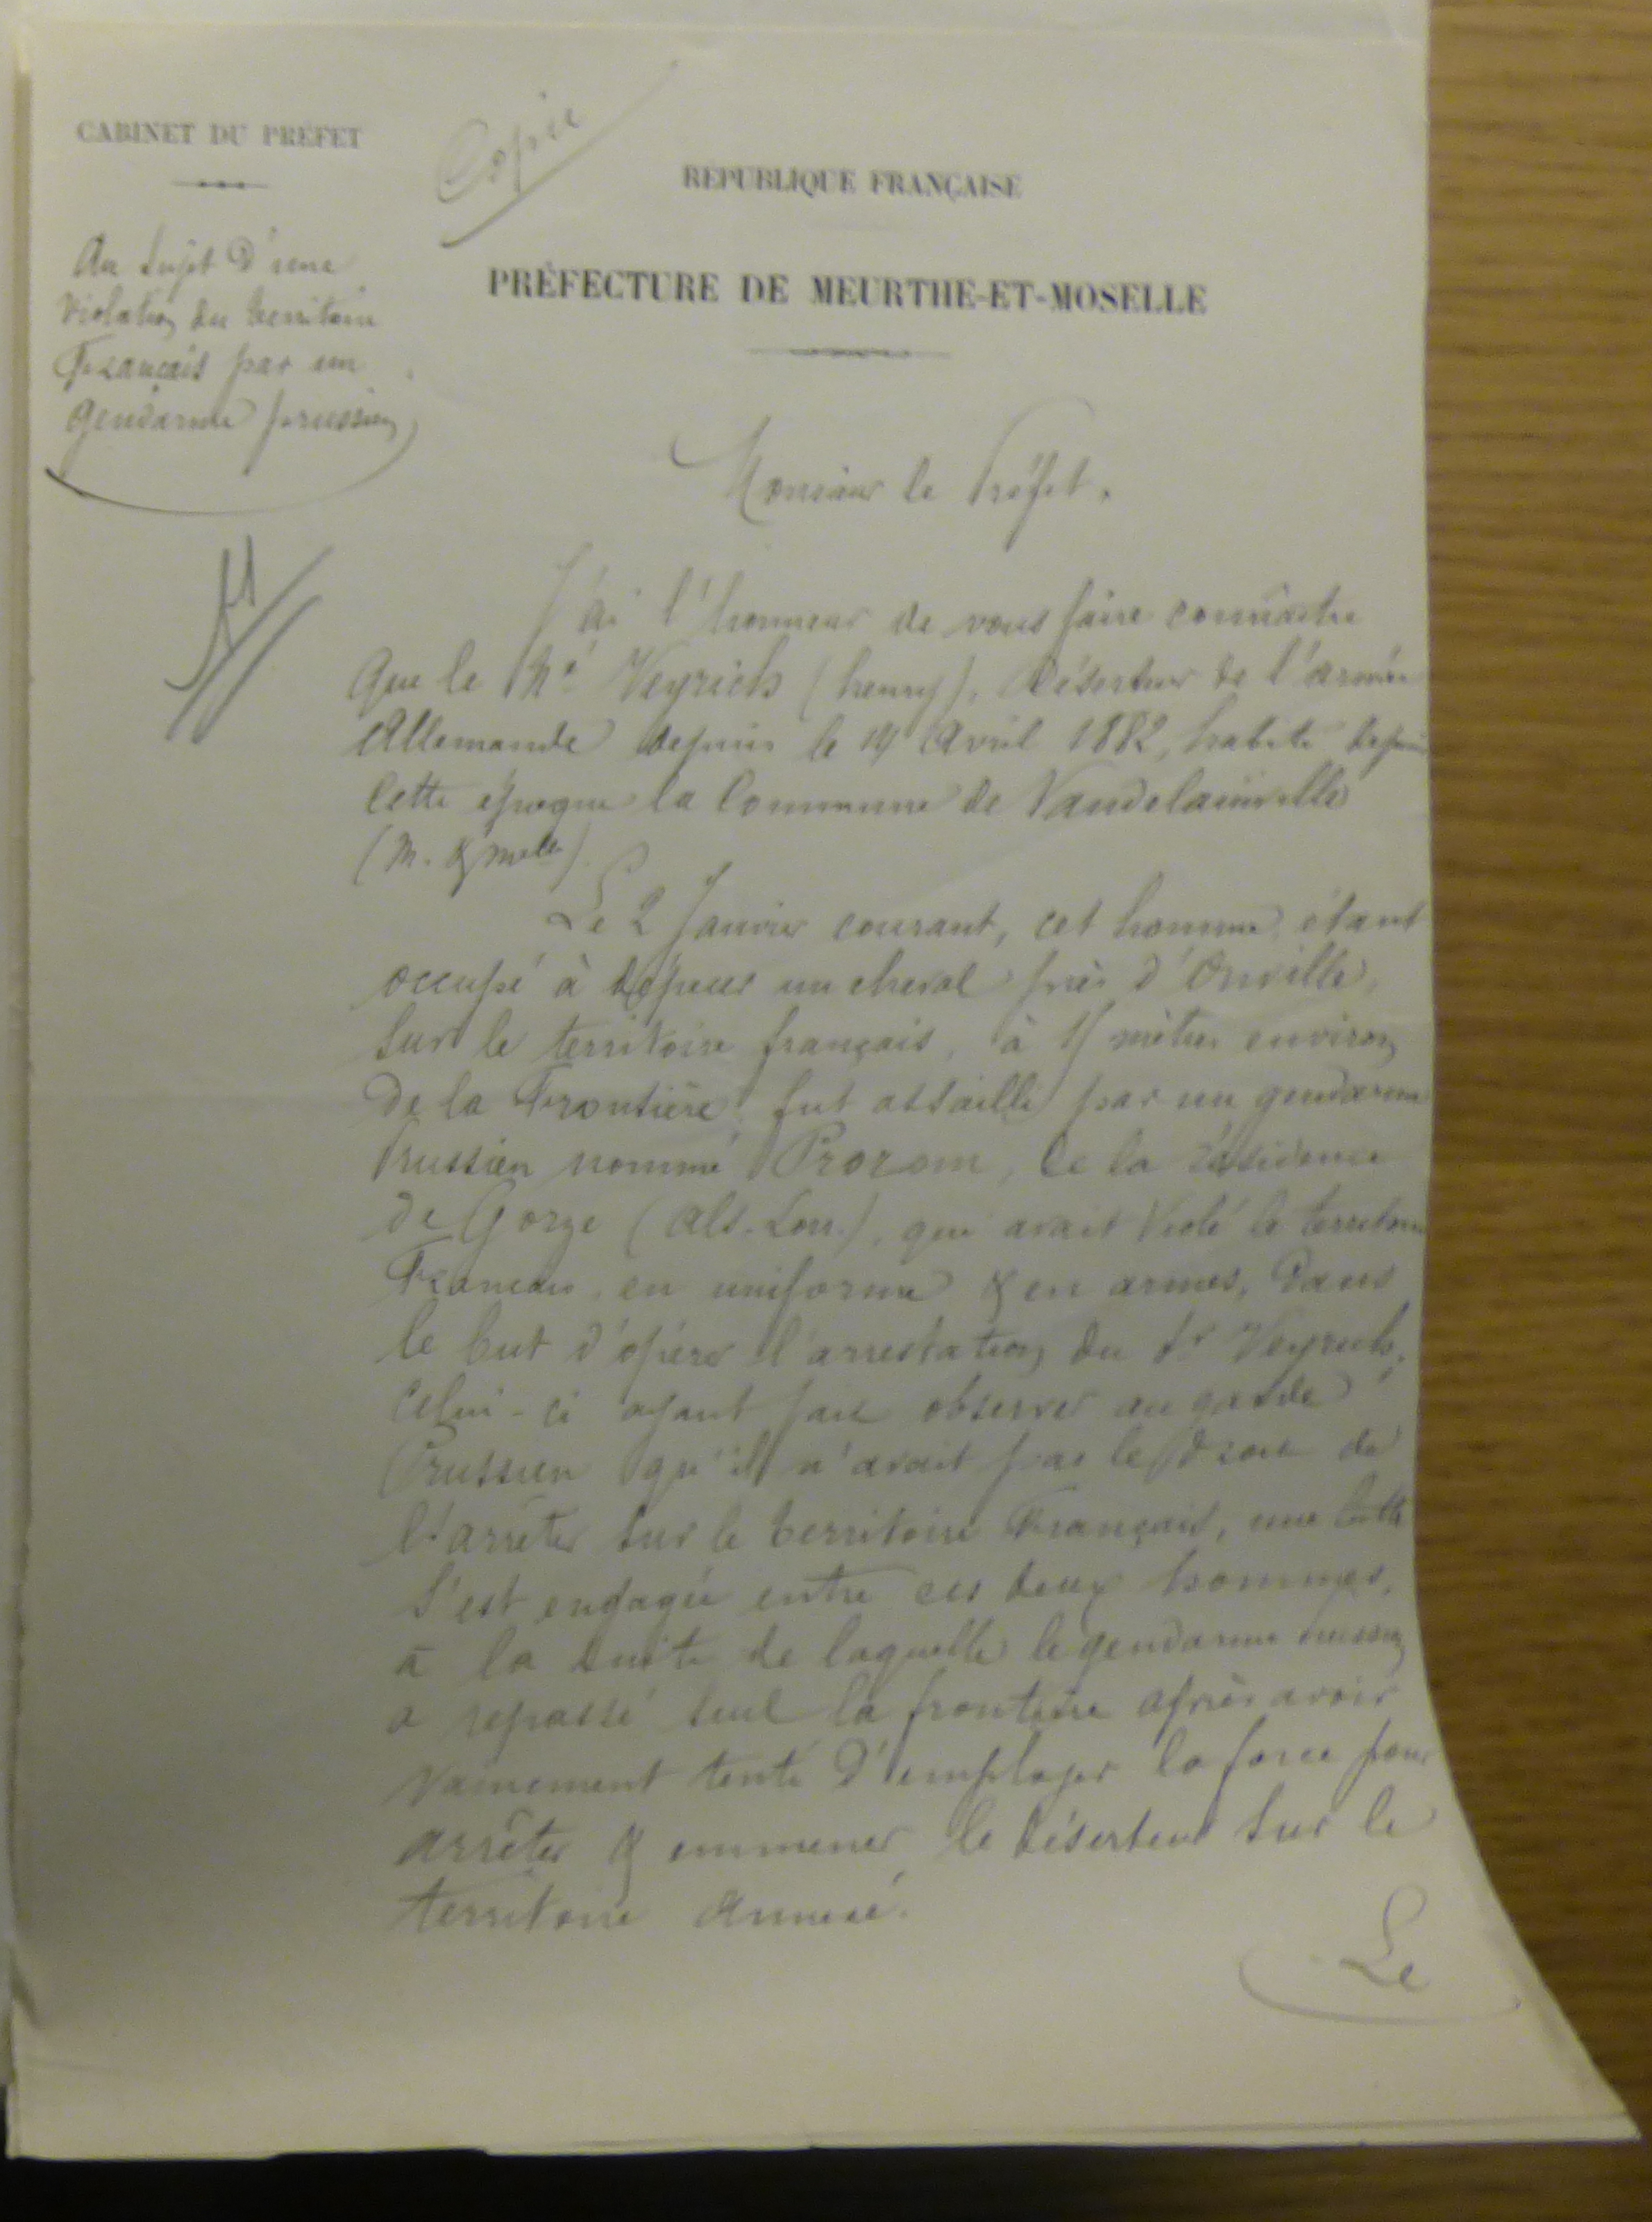 CABINET DU PRÉFET
Copie
RÉPUBLIQUE FRANÇAISE
PRÉFECTURE DE MEURTHE-ET-MOSELLE
Au sujet d'une
violation du territoire
Français par un
gendarme prussien
Monsieur le Préfet,
J'ai l'honneur de vous faire connaître
que le Veyrich (henry), déserteur de l'armée
Allemande depuis le Avril 1882, habite depuis
cette époque la Commune de Vandelainville
(M. & Melle).
Le 2 Janvier courant, cet homme étant
occupé à dépecer un cheval près d'Onville,
sur le territoire français, à mètres environ
de la Frontière, fut assailli par un gendarme
Prussien nommé Prozom, de la résidence
de Gorze (Als. Lorr.), qui avait violé le territoire
Français, en uniforme & en armes, dans
le but d'opérer l'arrestation du Sr Veyrich,
celui-ci ayant fait observer au garde
Prussien qu'il n'avait pas le droit de
l'arrêter sur le territoire Français, une lutte
s'est engagée entre ces deux hommes,
à la suite de laquelle le gendarme prussien
a repassé seul la frontière après avoir
vainement tenté d'employer la force pour
arrêter & emmener le déserteur sur le
territoire annexé.
Le